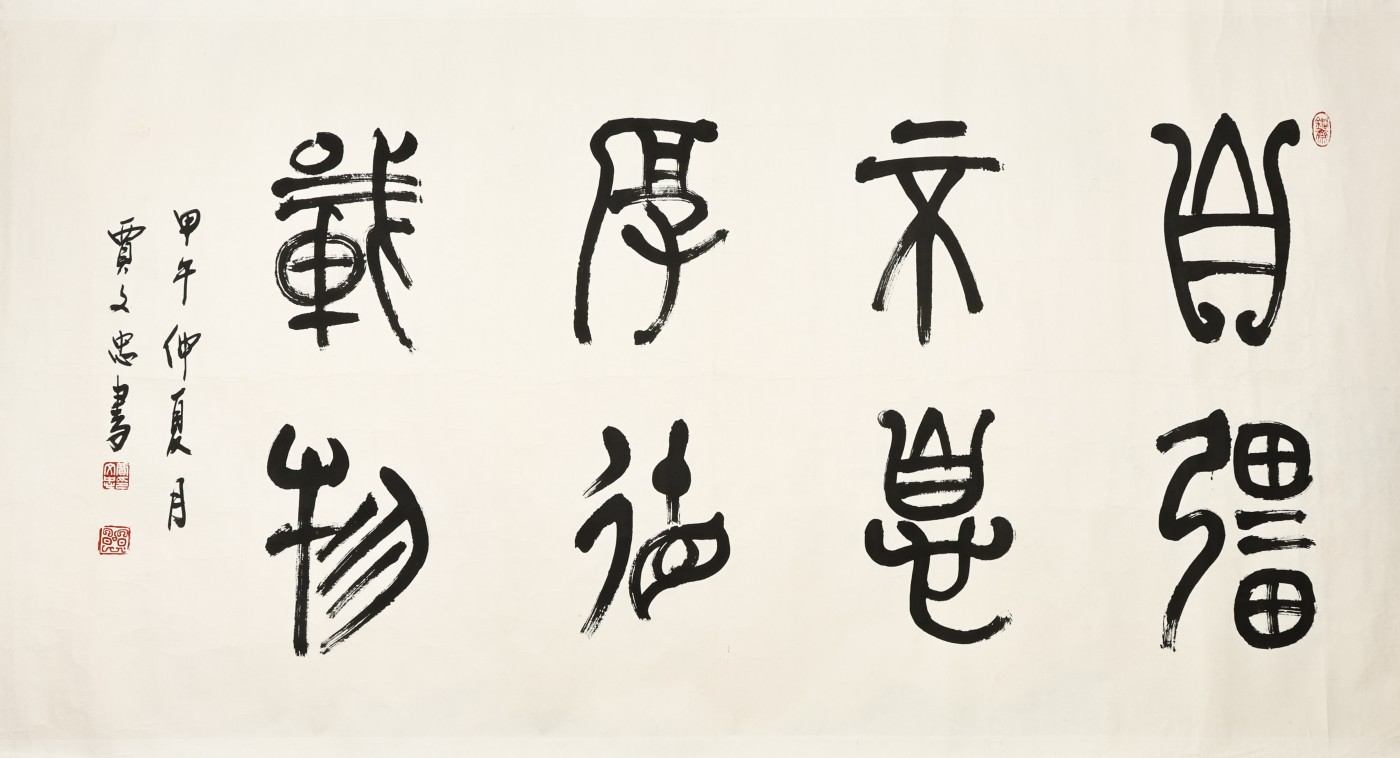 自彊
不息
厚德
載物
甲午仲夏月
賈文忠書